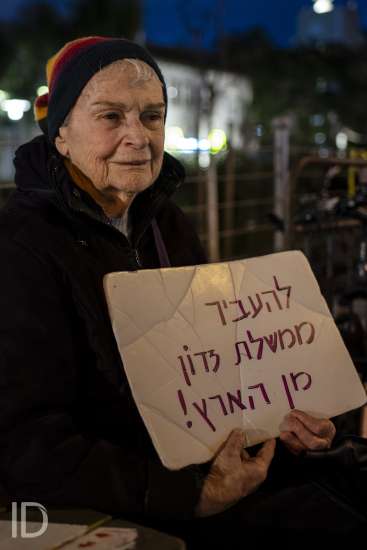 להעביר
ממשלת זדוֹן
מן הארץ!
ID